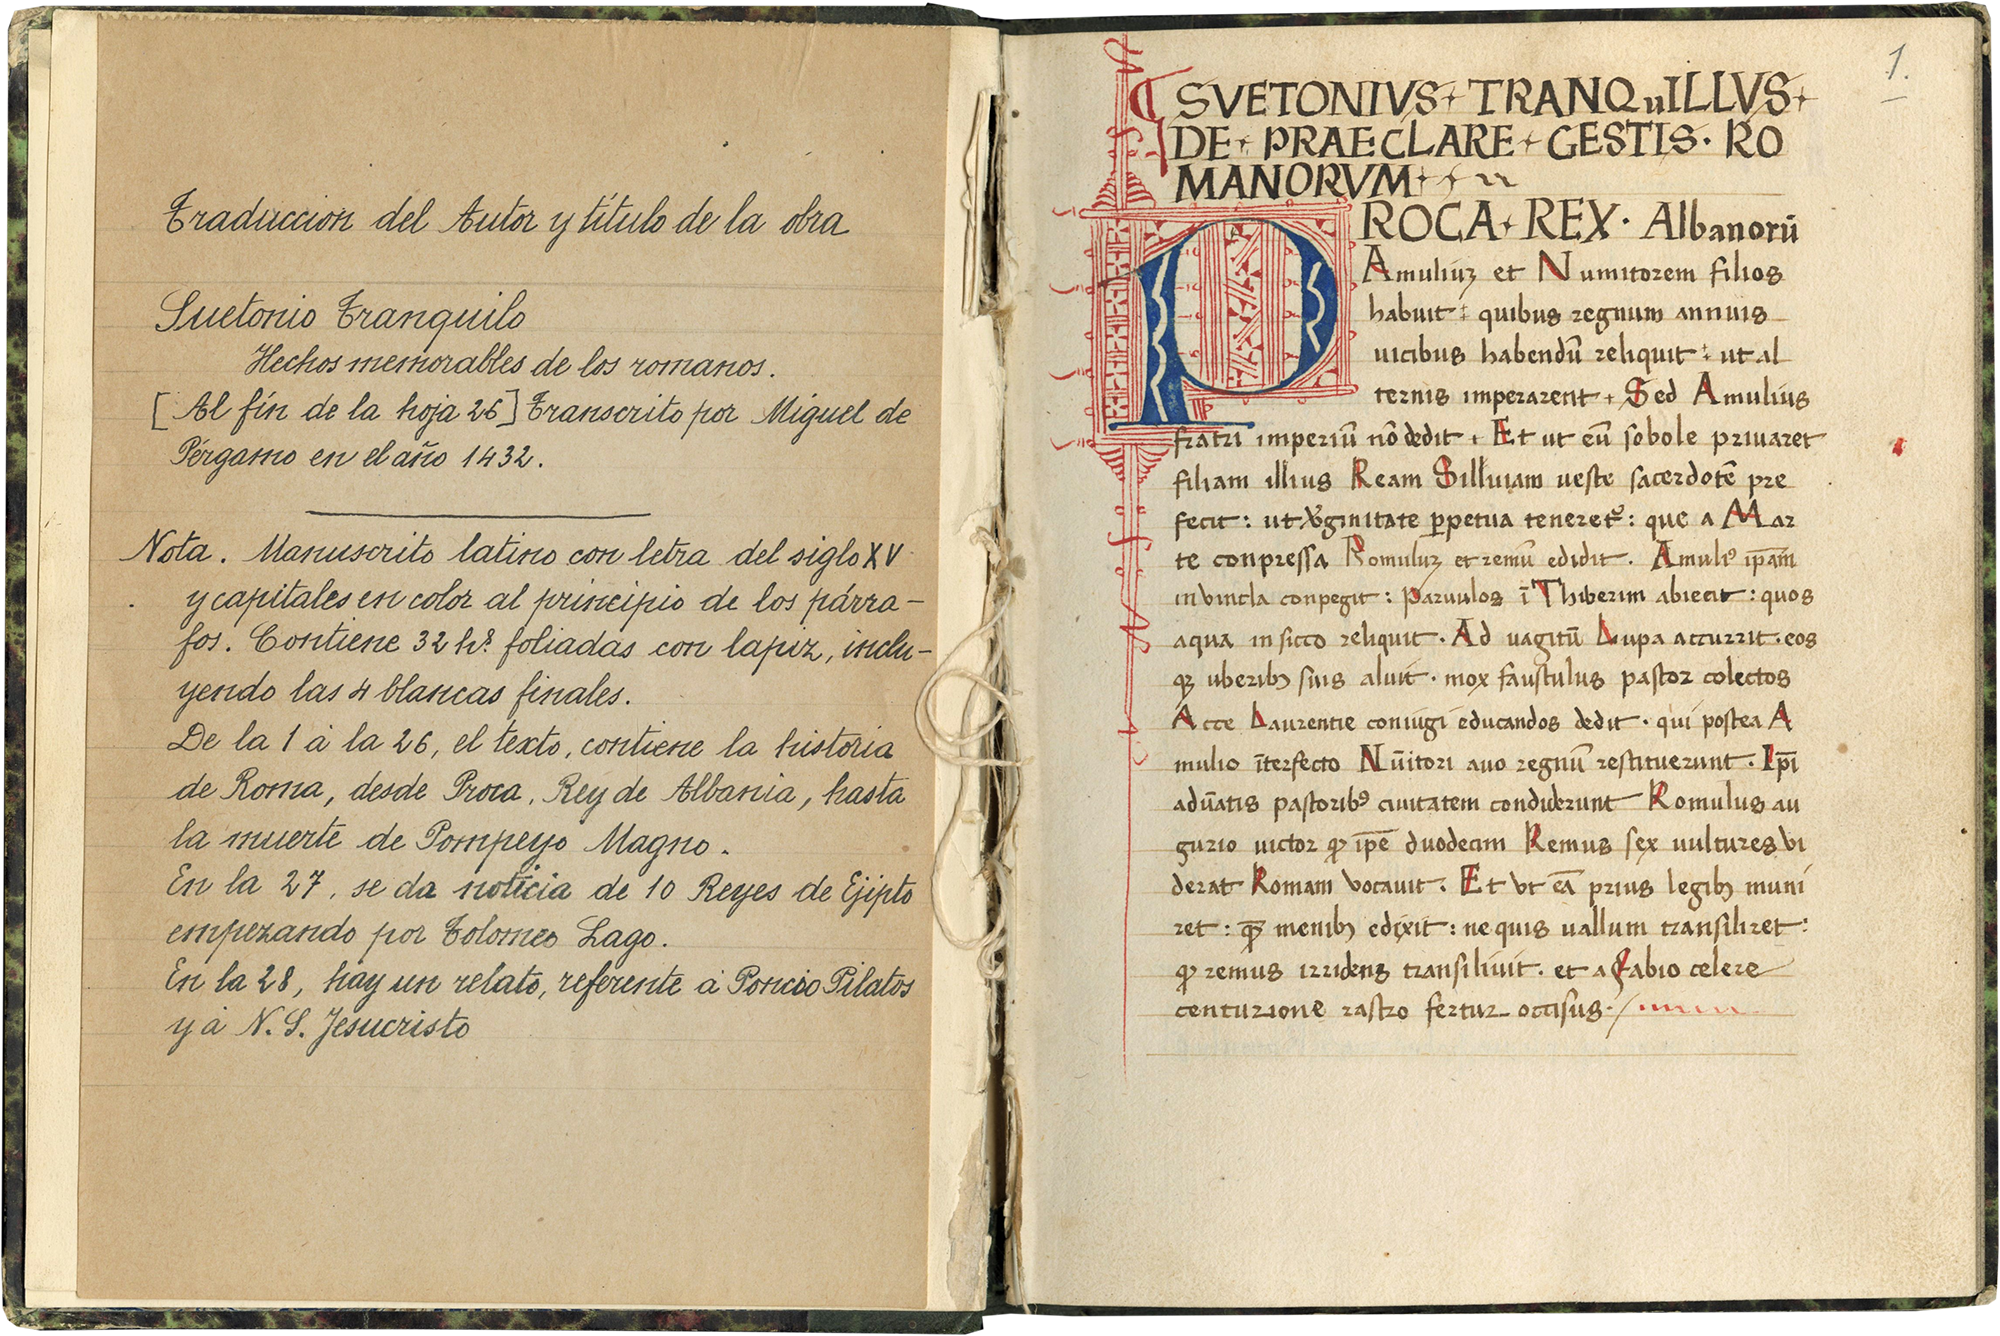 Traduccion del Autor y título de la obra
Suetonio Tranquilo
Hechos memorables de los romanos.
[Al fin de la hoja 26] Transcrito por Miguel de
Pérgamo en el año 1432.
Nota. Manuscrito latino con letra del siglo XV
y capitales en color al principio de los párra-
fos. Contiene 32 hˢ. foliadas con lapiz, inclu-
yendo las 4 blancas finales.
De la 1 á la 26, el texto, contiene la historia
de Roma, desde Proca, Rey de Albania, hasta
la muerte de Pompeyo Magno.
En la 27, se da noticia de 10 Reyes de Ejipto
empezando por Tolomeo Lago.
En la 28, hay un relato, referente á Poncio Pilatos
y á N. S. Jesucristo
1.
SVETONIVS + TRANQuILLVS +
DE + PRAECLARE + GESTIS · RO
MANORVM +
PROCA + REX · Albanorū
Amuliuꝫ et Numitorem filios
habuit : quibus regnum annuis
uicibus habendū reliquit : ut al
ternis imperarent + Sed Amulius
fratri imperiū nō dedit . Et ut eū sobole priuaret
filiam illius Ream Silluiam ueste sacerdotē pre
fecit : ut virginitate ꝑpetua teneretᷣ : que a Mar
te conpressa Romuluꝫ et remū edidit . Amuliꝰ ip̄am
in vincla conpegit : Paruulos ī Thiberim abiecit : quos
aqua in sicco reliquit . Ad uagitū Lupa accurrit . eos
qꝫ uberibꝫ suis aluit . mox faustulus pastor colectos
Acce Laurentie coniugi educandos dedit . qui postea A
mulio īterfecto Nūitori auo regnū restituerunt . Ip̄i
adūatis pastoribꝰ ciuitatem condiderunt Romulus au
gurio uictor qꝫ ip̄e duodecim Remus sex uultures vi
derat Romam vocauit . Et vt eā prius legibꝫ muni
ret : qꝫ menibꝫ edixit : ne quis uallum transiliret :
qꝫ remus irridens transiliuit . et a Fabio celere
centurione rastro fertur occisus .